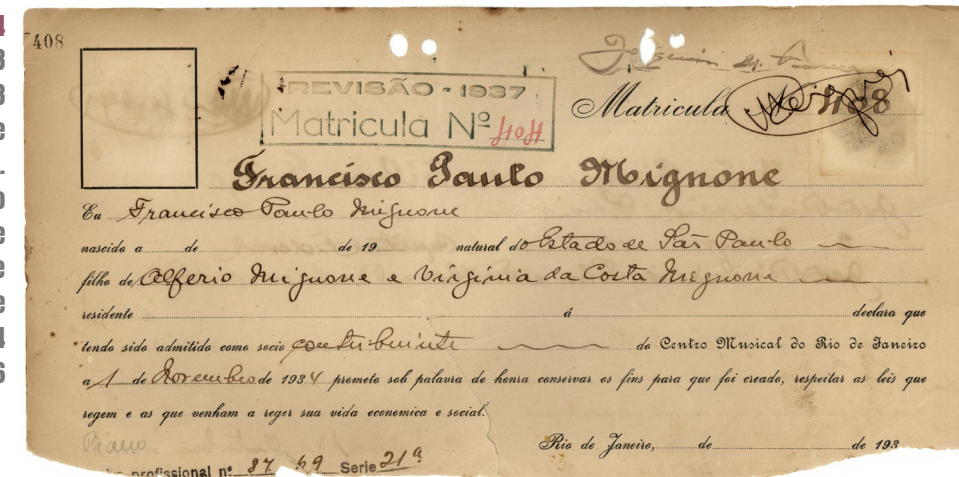 408
REVISÃO - 1937
Matricula Nº 404
Matricula 408
Francisco Paulo Mignone
Eu Francisco Paulo Mignone
nascido a de de 19 natural do Estado de São Paulo
filho de Alferio Mignone e Virginia da Costa Mignone
residente á declara que
tendo sido admitido como socio contribuinte do Centro Musical do Rio de Janeiro
a 1 de Novembro de 1934 prometo sob palavra de honra conservar os fins para que foi creado, respeitar as leis que
regem e as que venham a reger sua vida economica e social.
Piano
Rio de Janeiro, de de 193
profissional nº 37 Serie 21ª